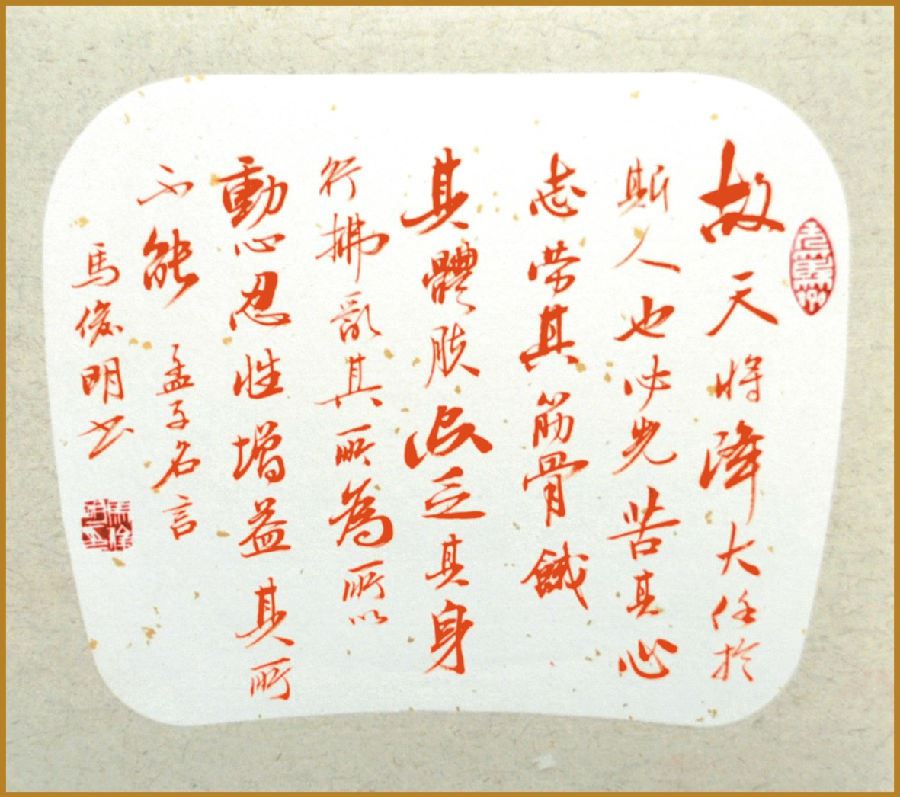 故天将降大任於
斯人也必先苦其心
志劳其筋骨餓
其體肤空乏其身
行拂亂其所為所以
動心忍性增益其所
不能 孟子名言
馬俊明书